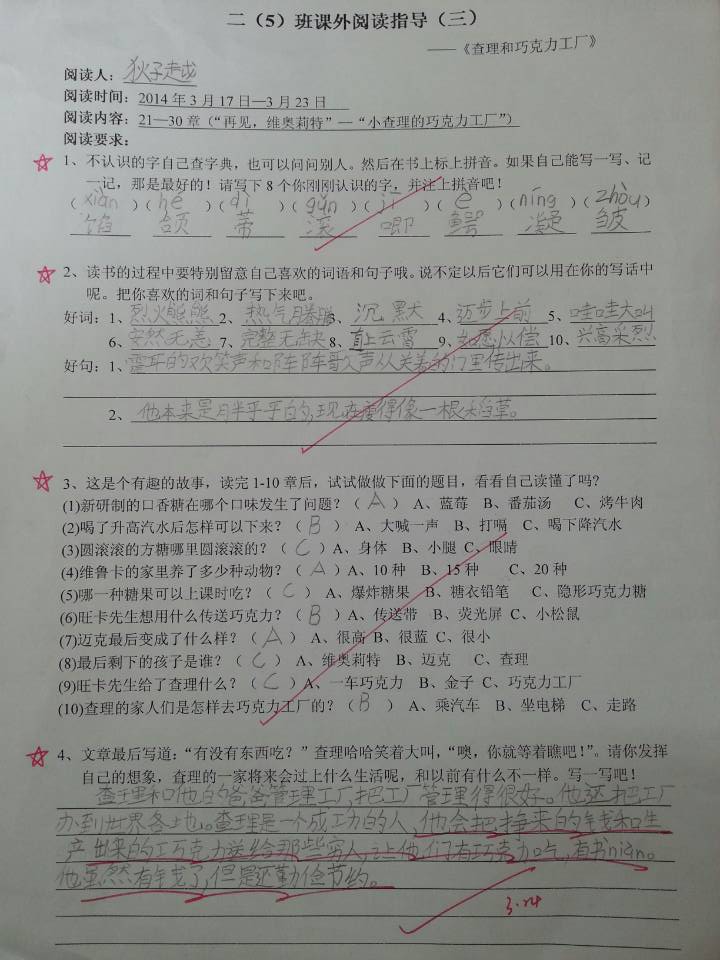 二（5）班课外阅读指导（三）
——《查理和巧克力工厂》
阅读人：狄子越
阅读时间：2014年3月17日—3月23日
阅读内容：21—30章（“再见，维奥莉特”—“小查理的巧克力工厂”）
阅读要求：
1、不认识的字自己查字典，也可以问问别人。然后在书上标上拼音。如果自己能写一写、记
一记，那是最好的！请写下8个你刚刚认识的字，并注上拼音吧！
（xiàn）（hé）（dì）（gǔn）（jī）（è）（níng）（zhòu）
馅 颌 蒂 滚 唧 鳄 凝 皱
2、读书的过程中要特别留意自己喜欢的词语和句子哦。说不定以后它们可以用在你的写话中
呢。把你喜欢的词和句子写下来吧。
好词：1、烈火熊熊 2、热气腾腾 3、沉默 4、迈步上前 5、哇哇大叫
6、安然无恙 7、完整无缺 8、直上云霄 9、如愿以偿 10、兴高采烈
好句：1、震耳的欢笑声和阵阵歌声从关着的门里传出来。
2、他本来是胖乎乎的，现在变得像一根稻草。
3、这是个有趣的故事，读完1-10章后，试试做做下面的题目，看看自己读懂了吗？
(1)新研制的口香糖在哪个口味发生了问题？（ A ） A、蓝莓 B、番茄汤 C、烤牛肉
(2)喝了升高汽水后怎样可以下来？（ B ） A、大喊一声 B、打嗝 C、喝下降汽水
(3)圆滚滚的方糖哪里圆滚滚的？（ C ）A、身体 B、小腿 C、眼睛
(4)维鲁卡的家里养了多少种动物？（ A ）A、10种 B、15种 C、20种
(5)哪一种糖果可以上课时吃？（ C ） A、爆炸糖果 B、糖衣铅笔 C、隐形巧克力糖
(6)旺卡先生想用什么传送巧克力？（ B ）A、传送带 B、荧光屏 C、小松鼠
(7)迈克最后变成了什么样？（ A ） A、很高 B、很蓝 C、很小
(8)最后剩下的孩子是谁？（ C ） A、维奥莉特 B、迈克 C、查理
(9)旺卡先生给了查理什么？（ C ）A、一车巧克力 B、金子 C、巧克力工厂
(10)查理的家人们是怎样去巧克力工厂的？（ B ） A、乘汽车 B、坐电梯 C、走路
4、文章最后写道：“有没有东西吃？”查理哈哈笑着大叫，“噢，你就等着瞧吧！”。请你发挥
自己的想象，查理的一家将来会过上什么生活呢，和以前有什么不一样。写一写吧！
查理和他的爸爸管理工厂，把工厂管理得很好。他还把工厂
办到世界各地。查理是一个成功的人，他会把挣来的钱和生
产出来的巧克力送给那些穷人，让他们有巧克力吃，有书niàn。
他虽然有钱了，但是还勤俭节约。
3.24